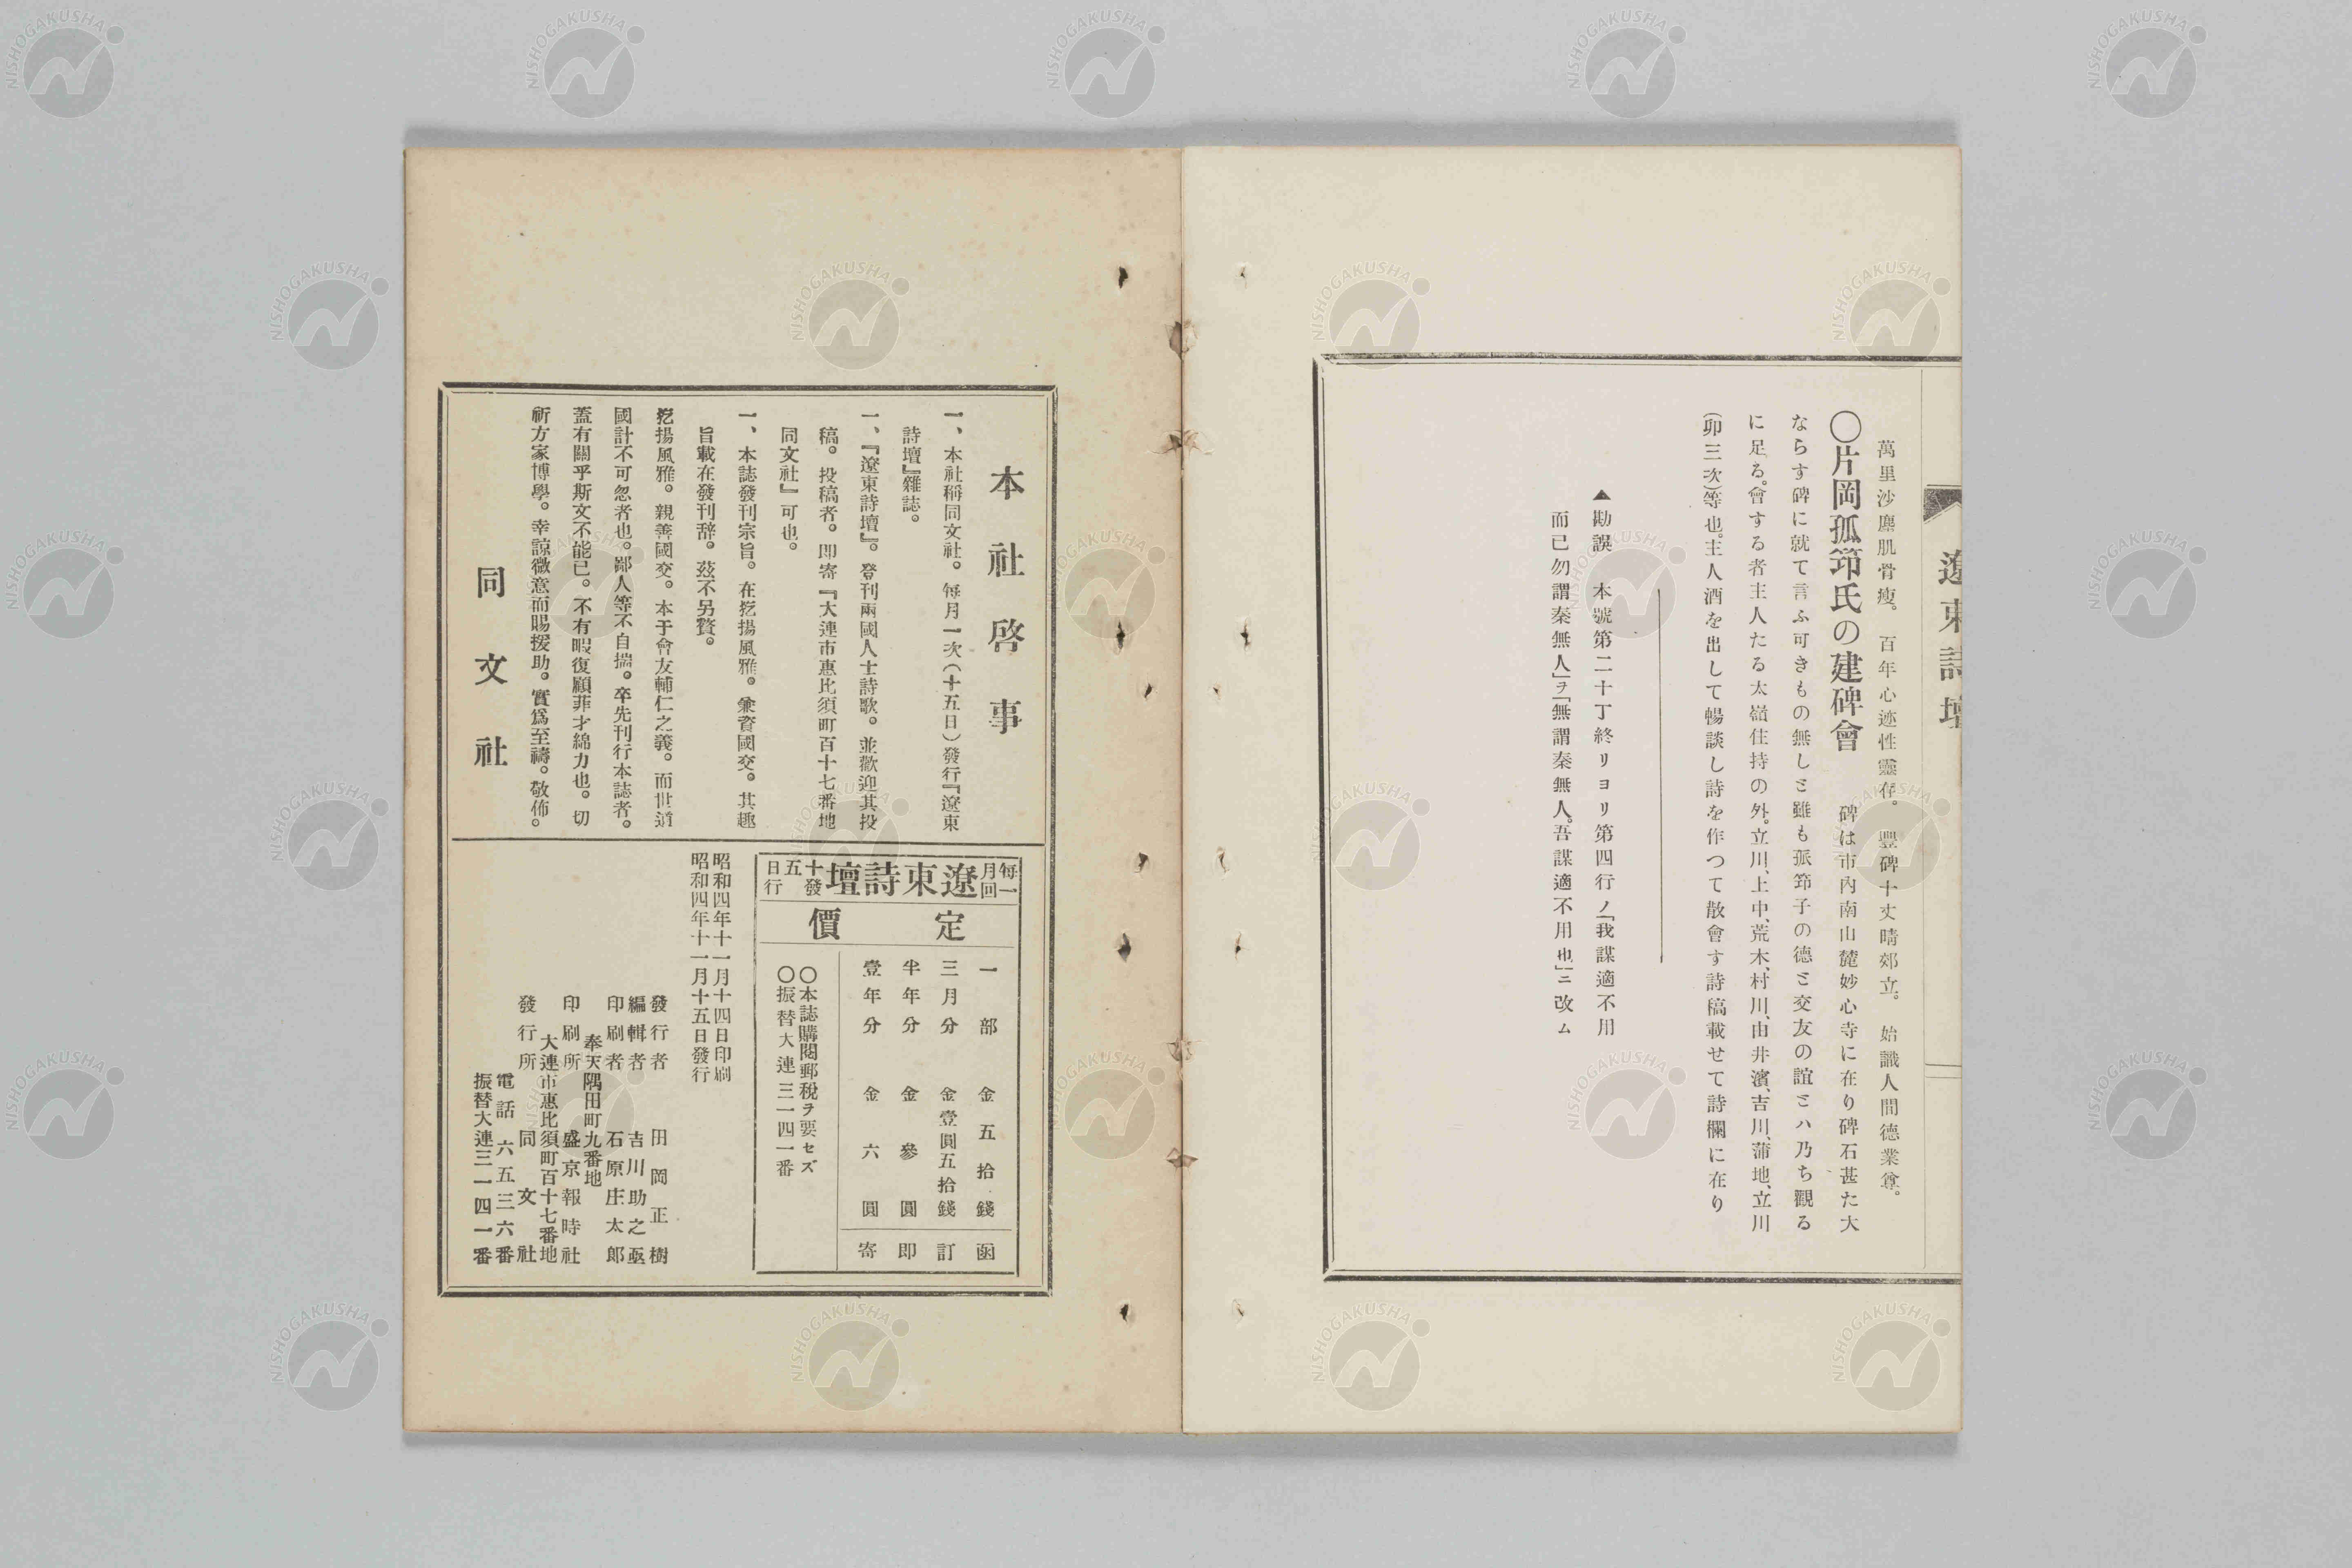 遼東詩壇
萬里沙塵肌骨瘦。百年心迹性靈存。豐碑十丈晴郊立。始識人間德業尊。
〇片岡孤筇氏の建碑會　碑は市內南山麓妙心寺に在り碑石甚た大
ならす碑に就て言ふ可きもの無しと雖も孤筇子の德と交友の誼とハ乃ち觀る
に足る。會する者主人たる太嶺住持の外。立川、上中、荒木、村川、由井濱、吉川、蒲地、立川
(卯三次)等也。主人酒を出して暢談し詩を作つて散會す詩稿載せて詩欄に在り
▲勘誤　本號第二十丁終リヨリ第四行ノ「我謀適不用
而已勿謂秦無人」ヲ「無謂秦無人。吾謀適不用也」ニ改ム
本社啓事
一、本社稱同文社。每月一次(十五日)發行『遼東
詩壇』雜誌。
一、『遼東詩壇』。登刊兩國人士詩歌。並歡迎其投
稿。投稿者。卽寄『大連市惠比須町百十七番地
同文社』可也。
一、本誌發刊宗旨。在扢揚風雅。兼資國交。其趣
旨載在發刊辭。玆不另贅。
扢揚風雅。親善國交。本于會友輔仁之義。而世道
國計不可忽者也。鄙人等不自揣。卒先刊行本誌者。
蓋有關乎斯文不能已。不有暇復顧菲才綿力也。切
祈方家博學。幸諒微意而賜援助。實爲至禱。敬佈。
同文社
每月一回
遼東詩壇
十五日發行
定價
一部　金五拾錢
三月分　金壹圓五拾錢
半年分　金參圓
壹年分　金六圓
函訂卽寄
〇本誌購閱郵稅ヲ要セズ
〇振替大連三一四一番
昭和四年十一月十四日印刷
昭和四年十一月十五日發行
發行者　田岡正樹
編輯者　吉川助之亟
印刷者　石原庄太郎
奉天隅田町九番地
印刷所　盛京報時社
大連市惠比須町百十七番地
發行所　同文社
電話六五三六番
振替大連三一四一番